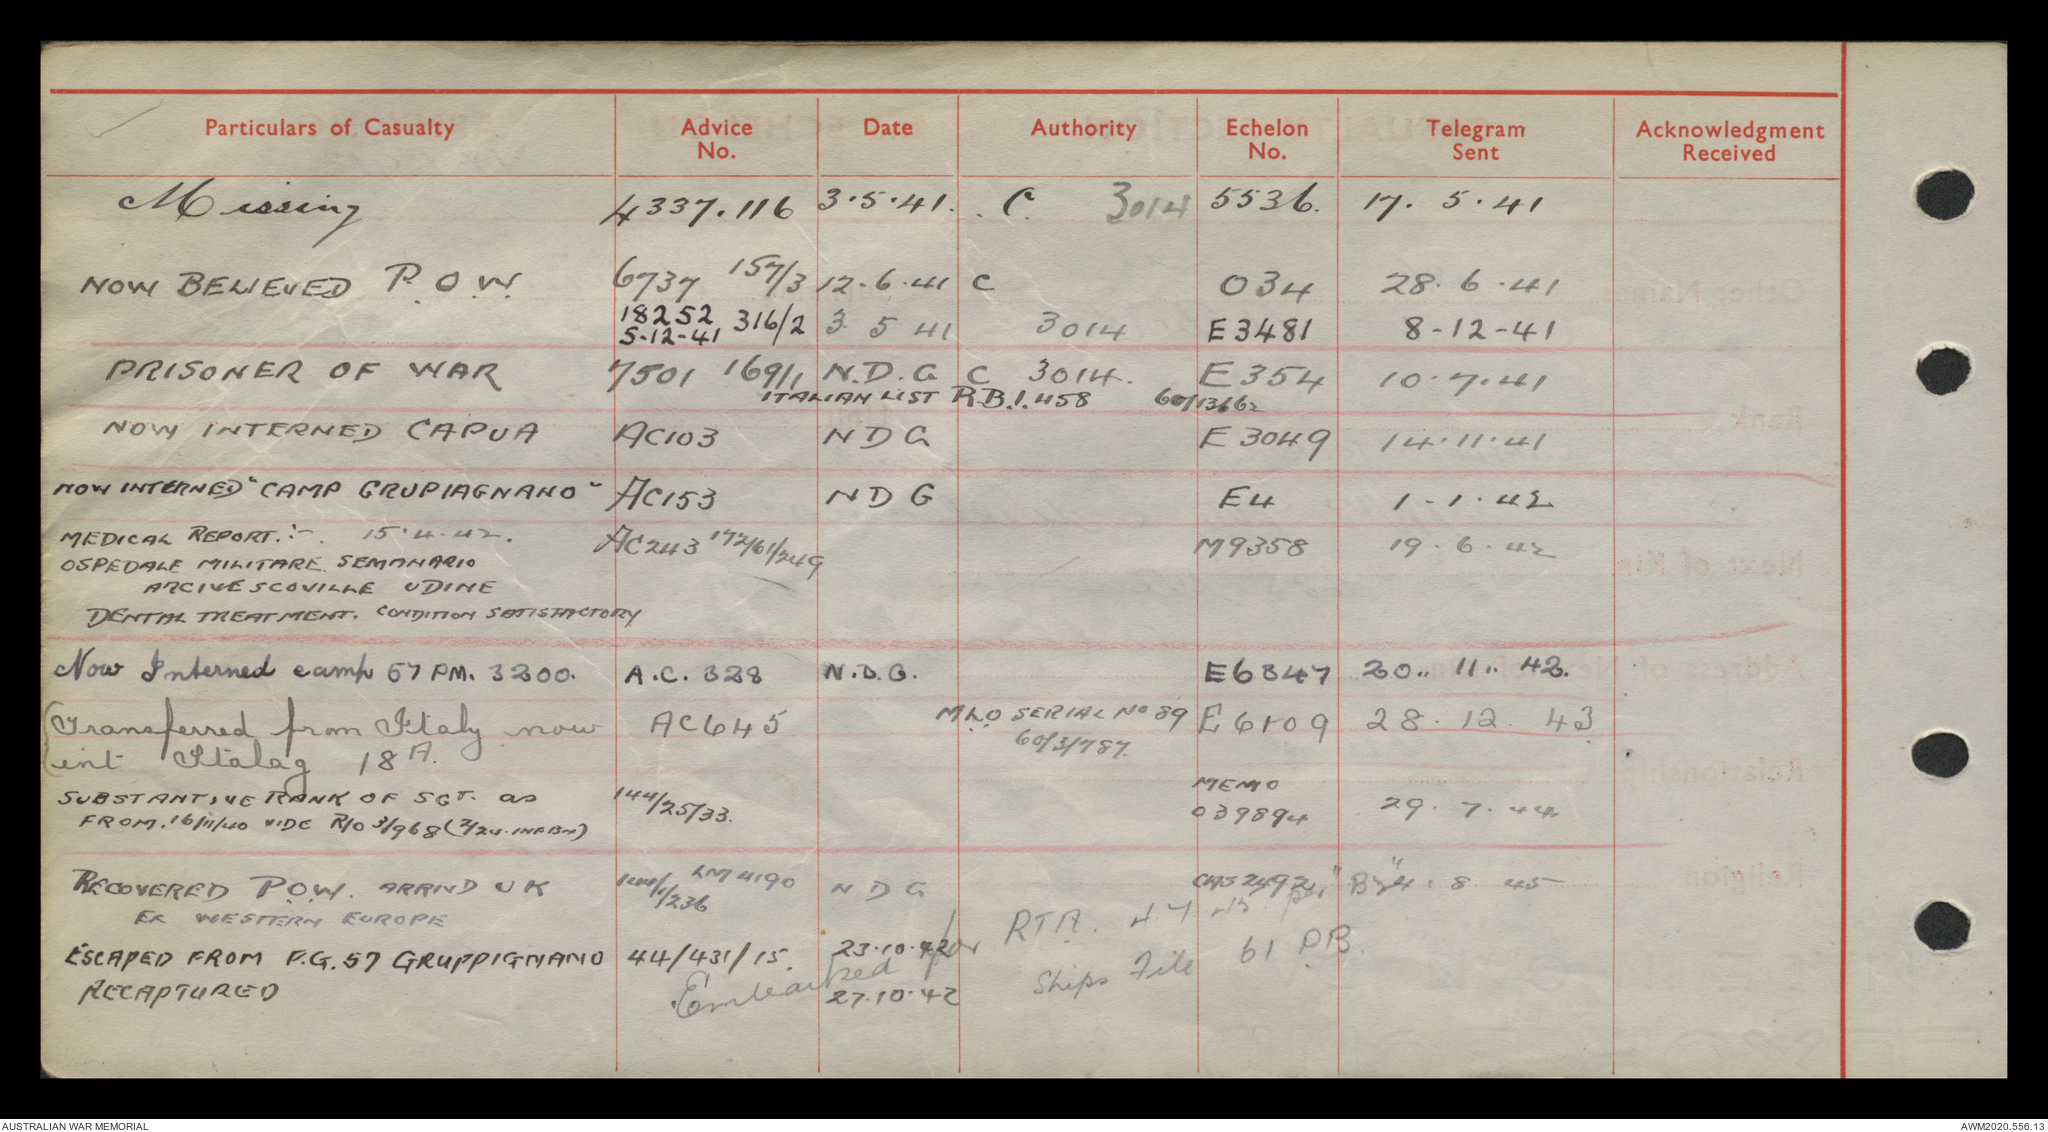 Particulars of Casualty Advice No. Date Authority Echelon No. Telegram Sent Acknowledgment Received
Missing 4337.116 3.5.41. C 3014 5536. 17. 5. 41
NOW BELIEVED P.O.W. 6737 157/3 12.6.41 C 034 28.6.41
18252 5-12-41 316/2 3 5 41 3014 E3481 8-12-41
PRISONER OF WAR 7501 169/1 N.D.G C 3014. E354 10.7.41
ITALIAN LIST R.B.1.458
NOW INTERNED CAPUA AC103 NDG E3049 14.11.41
NOW INTERNED "CAMP GRUPIAGNANO" AC153 NDG E4 1-1.42
MEDICAL REPORT:- 15.4.42. AC243 172/61/249 M9358 19.6.42
OSPEDALE MILITARE SEMMNARIO
ARCIVESCOVILLE UDINE
DENTAL TREATMENT. CONDITION SATISFACTORY
Now Interned camp 57 PM. 3200. A.C. 328 N.D.G. E6347 20.. 11.. 42.
Transferred from Italy now AC645 MLO SERIAL No 89 E6109 28.12.43
int Stalag 18A. 60/3/787.
SUBSTANTIVE RANK OF SGT. as 144/25/33. MEMO
FROM. 16/11/40 VIDE R/O 3/968 (2/24. INF BN) 039894 29.7.44
RECOVERED P.O.W. ARRIVD UK LM4190 NDG CAS2492 "By" 4.8.45
EX WESTERN EUROPE /1/236
Embarked for RTA. 4 7 45 per
Ships File 61 PB.
ESCAPED FROM P.G. 57 GRUPPIGNANO 44/431/15. 23.10.42
RECAPTURED 27.10.42
AUSTRALIAN WAR MEMORIAL AWM2020.556.13